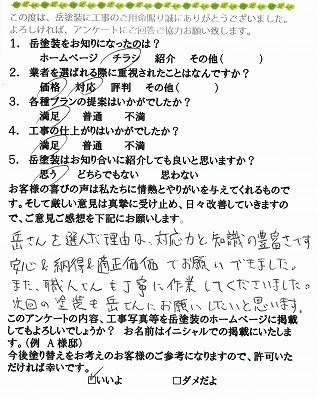 この度は、岳塗装に工事のご用命賜り誠にありがとうございました。
よろしければ、アンケートにご回答ご協力お願い致します。
1. 岳塗装をお知りになったのは？
ホームページ　チラシ　紹介　その他(　　　　)
2. 業者を選ばれる際に重視されたことはなんですか？
価格　対応　評判　その他(　　　　)
3. 各種プランの提案はいかがでしたか？
満足　普通　不満
4. 工事の仕上がりはいかがでしたか？
満足　普通　不満
5. 岳塗装はお知り合いに紹介しても良いと思いますか？
思う　どちらでもない　思わない
お客様の喜びの声は私たちに情熱とやりがいを与えてくれるもので
す。そして厳しい意見は真摯に受け止め、日々改善していきますの
で、ご意見ご感想を下記にお願いします。
岳さんを選んだ理由は、対応力と知識の豊富さです
安心＆納得＆適正価格でお願いできました。
また、職人さんも丁寧に作業してくださいました。
次回の塗装も岳さんにお願いしたいと思います。
このアンケートの内容、工事写真等を岳塗装のホームページに掲載
してもよろしいでしょうか？　お名前はイニシャルでの掲載にいたしま
す。(例　A 様邸)
今後塗り替えをお考えのお客様のご参考になりますので、許可いた
だければ幸いです。
☑いいよ　□ダメだよ